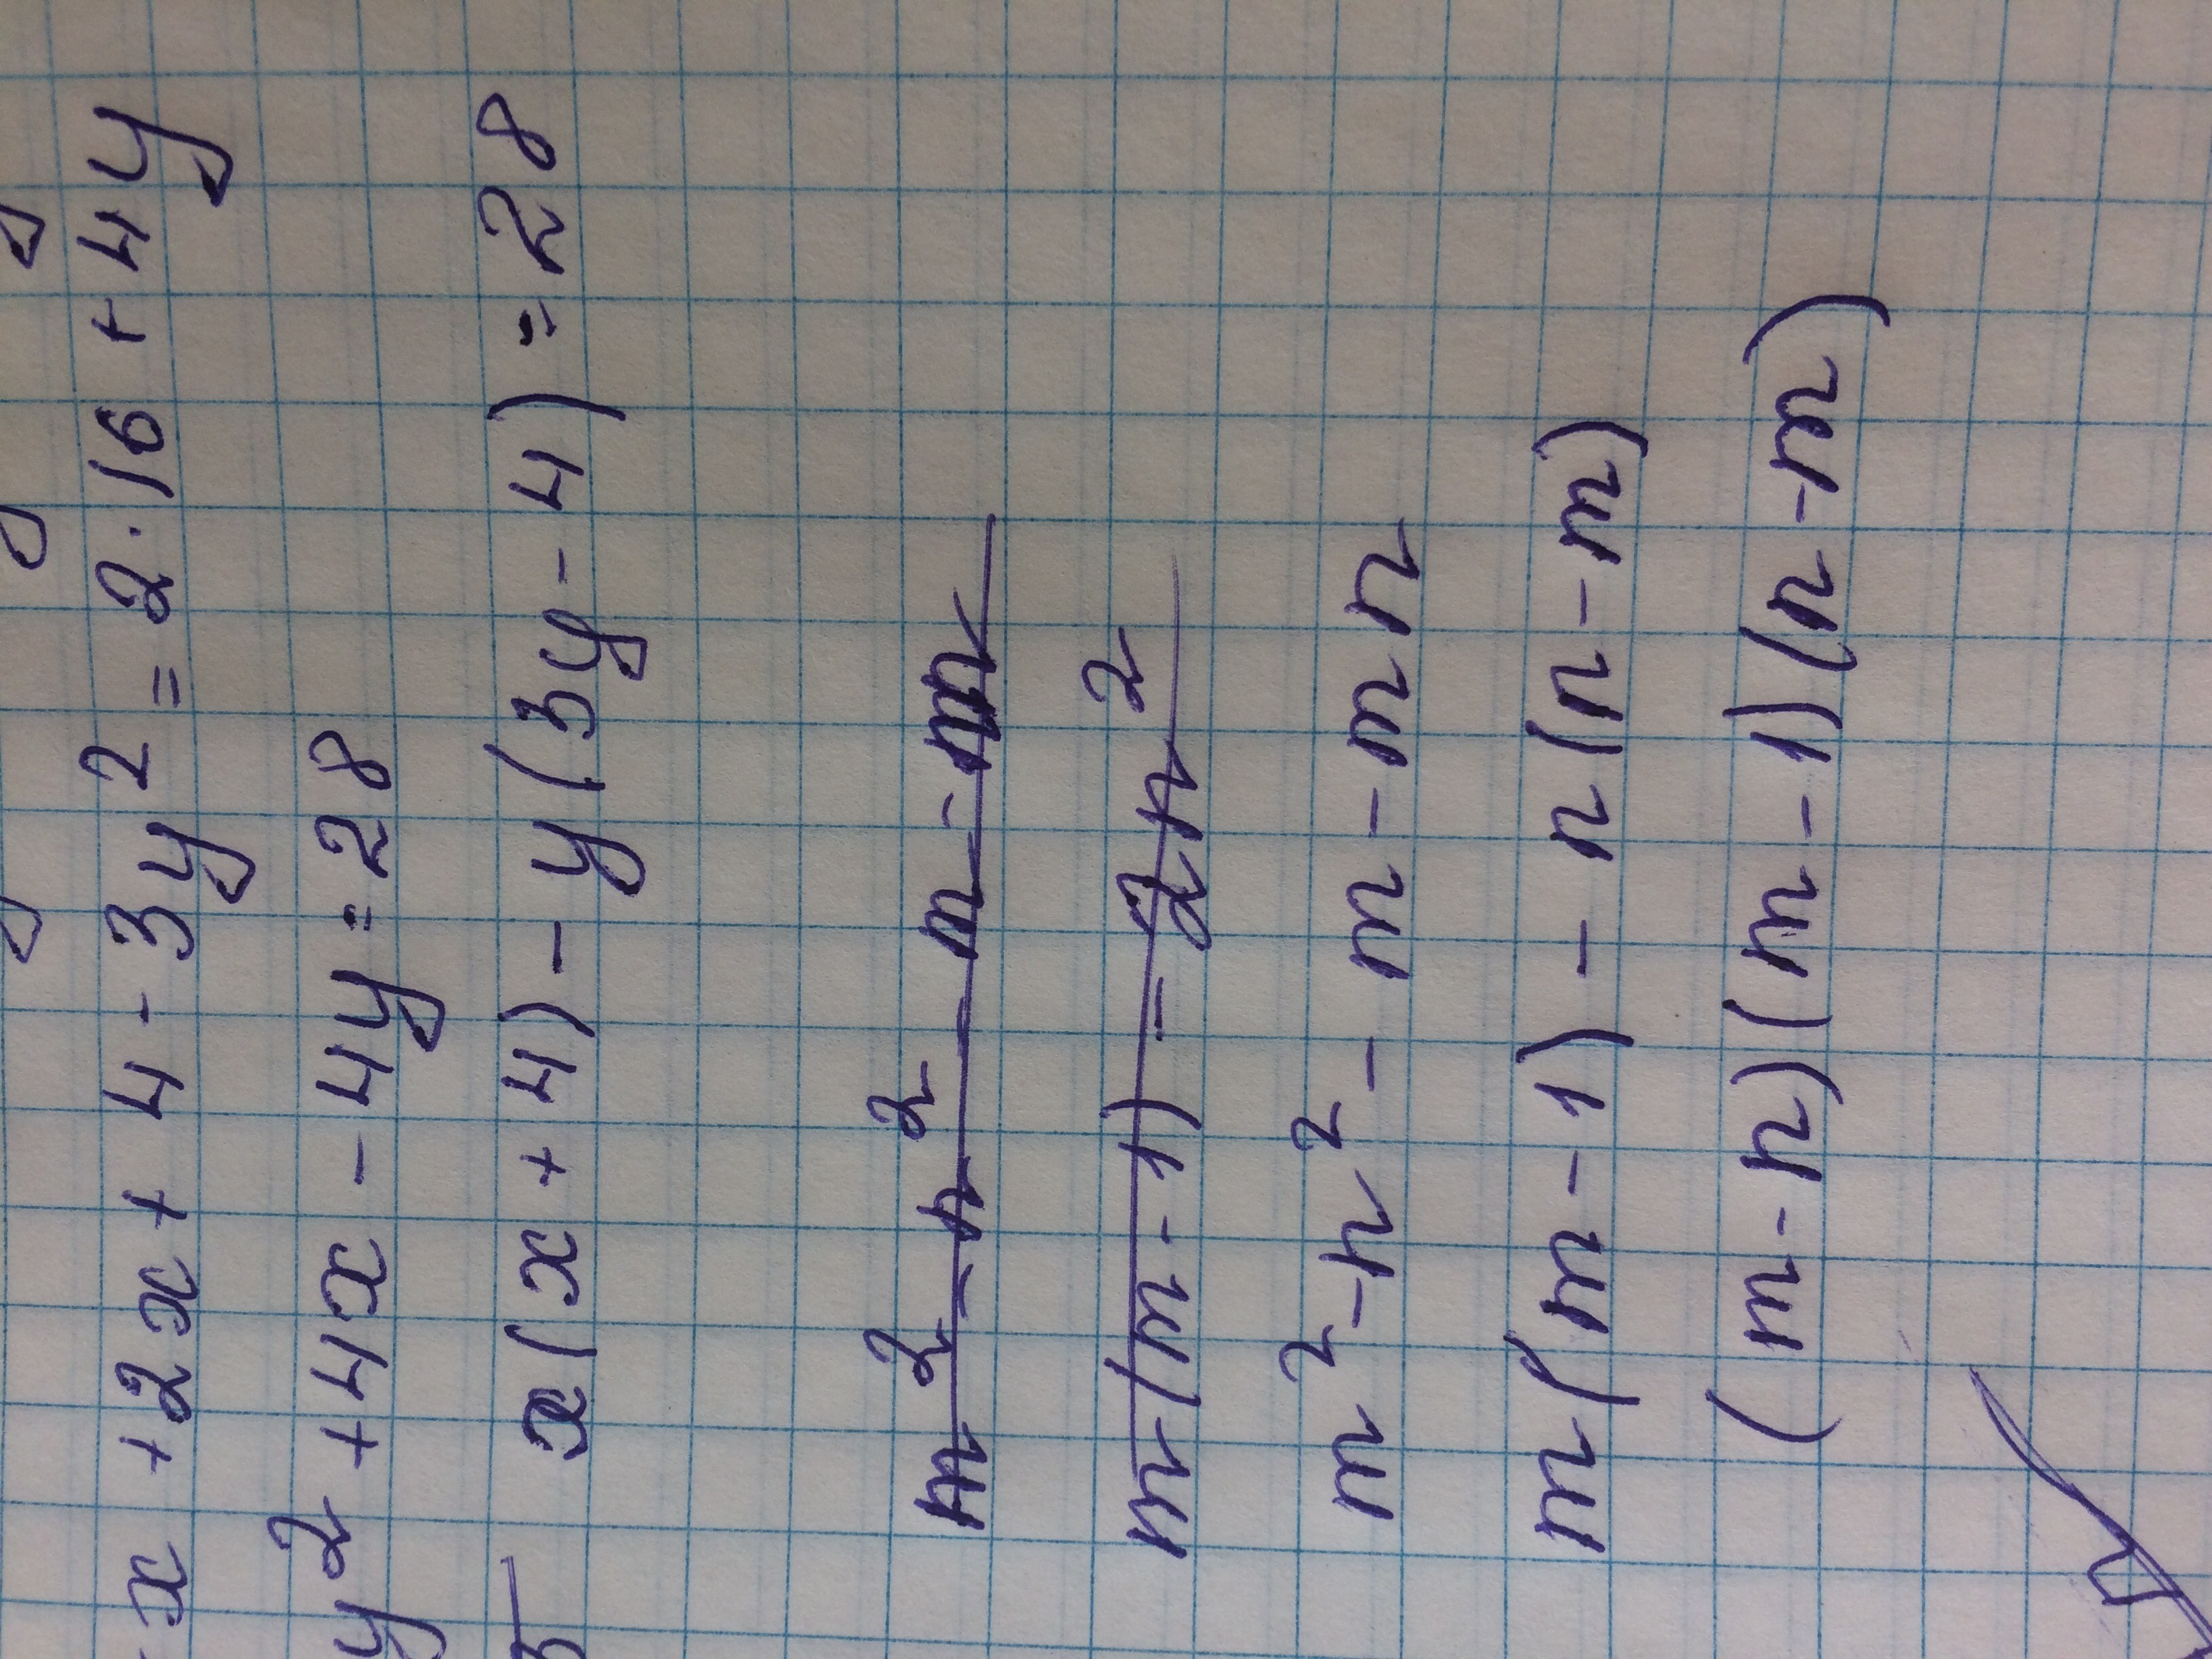 x + 2x + 4 - 3y² = 2·16 + 4y
y² + 4x - 4y = 28
x(x + 4) - y(3y - 4) = 28
m² - n² - m - 
m(m - 1) - 2n²
m² - n² - m - mn
m(m - 1) - n(n - m)
(m - n)(m - 1)(n - m)